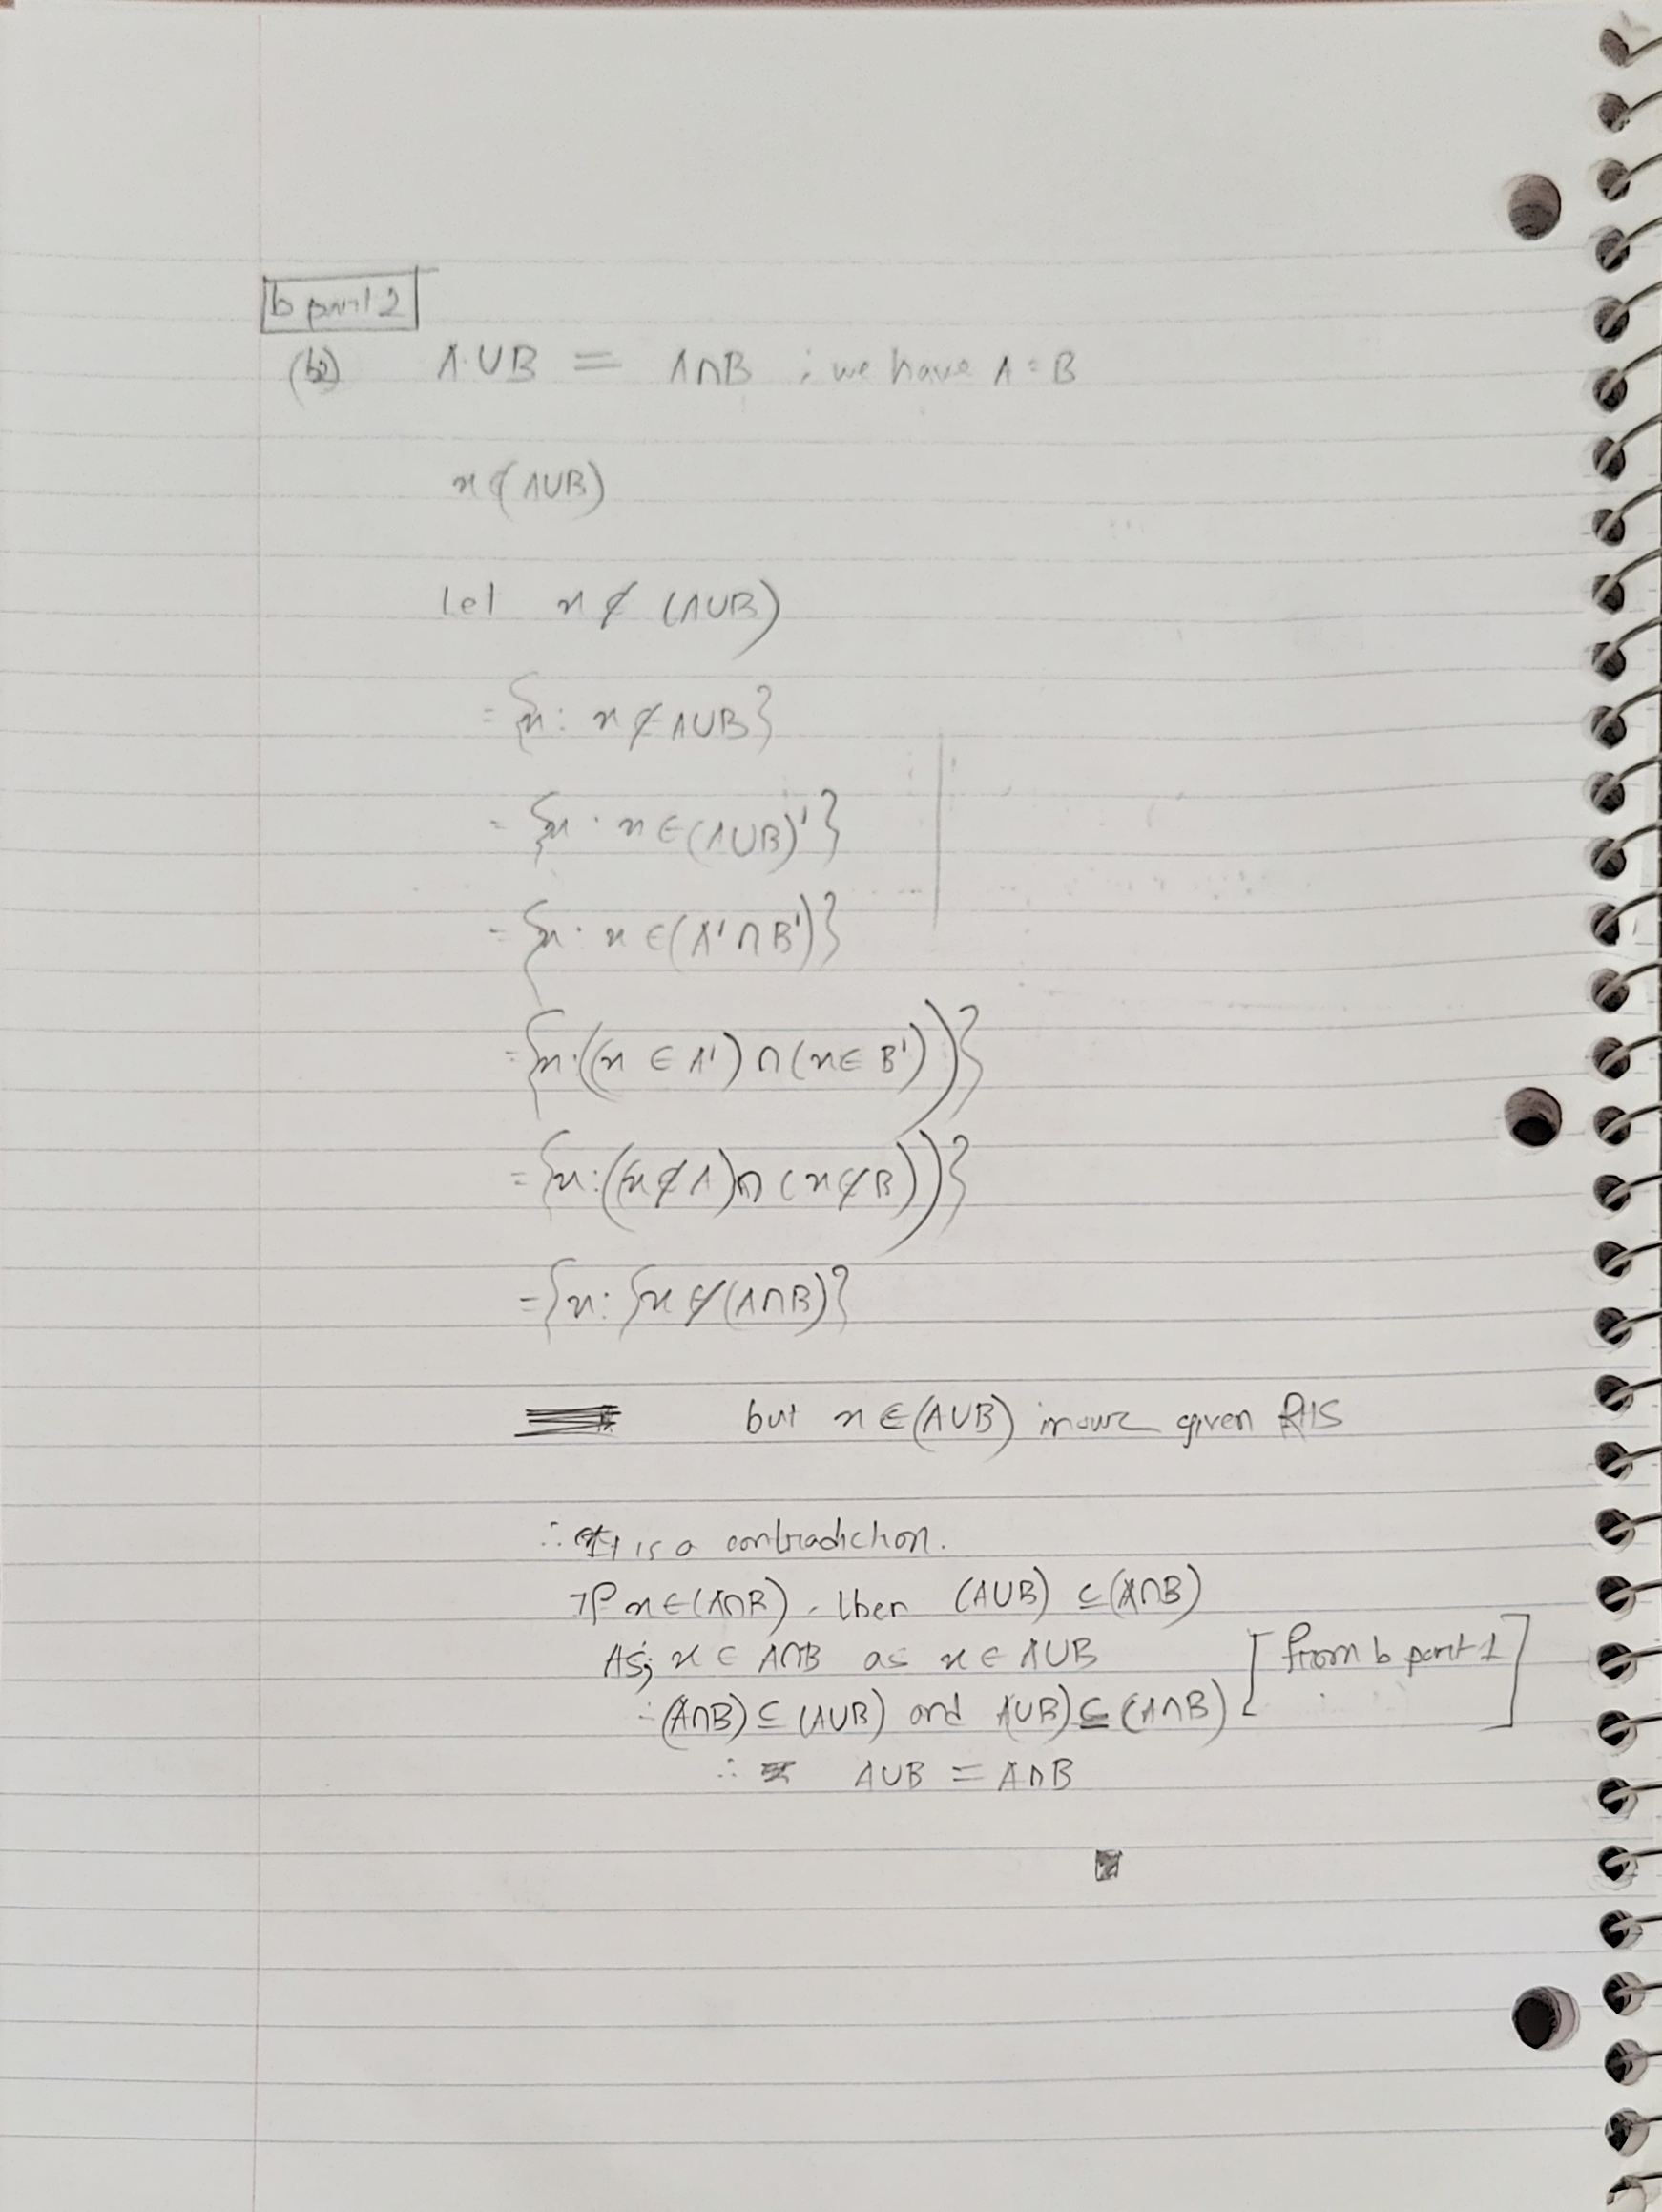 b part 2
(b) A ∪ B = A ∩ B ; we have A = B
x ∉ (A∪B)
Let x ∉ (A∪B)
= {x : x ∉ A∪B}
= {x : x ∈ (A∪B)'}
= {x : x ∈ (A' ∩ B')}
= {x : ((x ∈ A') ∩ (x ∈ B'))}
= {x : ((x ∉ A) ∩ (x ∉ B))}
= {x : {x ∉ (A∩B)}
but x ∈ (A∪B) in our given RHS
∴ It is a contradiction.
If x ∈ (A∩B), then (A∪B) ⊆ (A∩B)
As; x ∈ A∩B as x ∈ A∪B [from b part 1]
∴ (A∩B) ⊆ (A∪B) and A∪B) ⊆ (A∩B)
∴ A∪B = A∩B